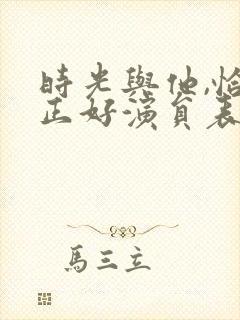 時光與他,恰
正好演員表
馬三立